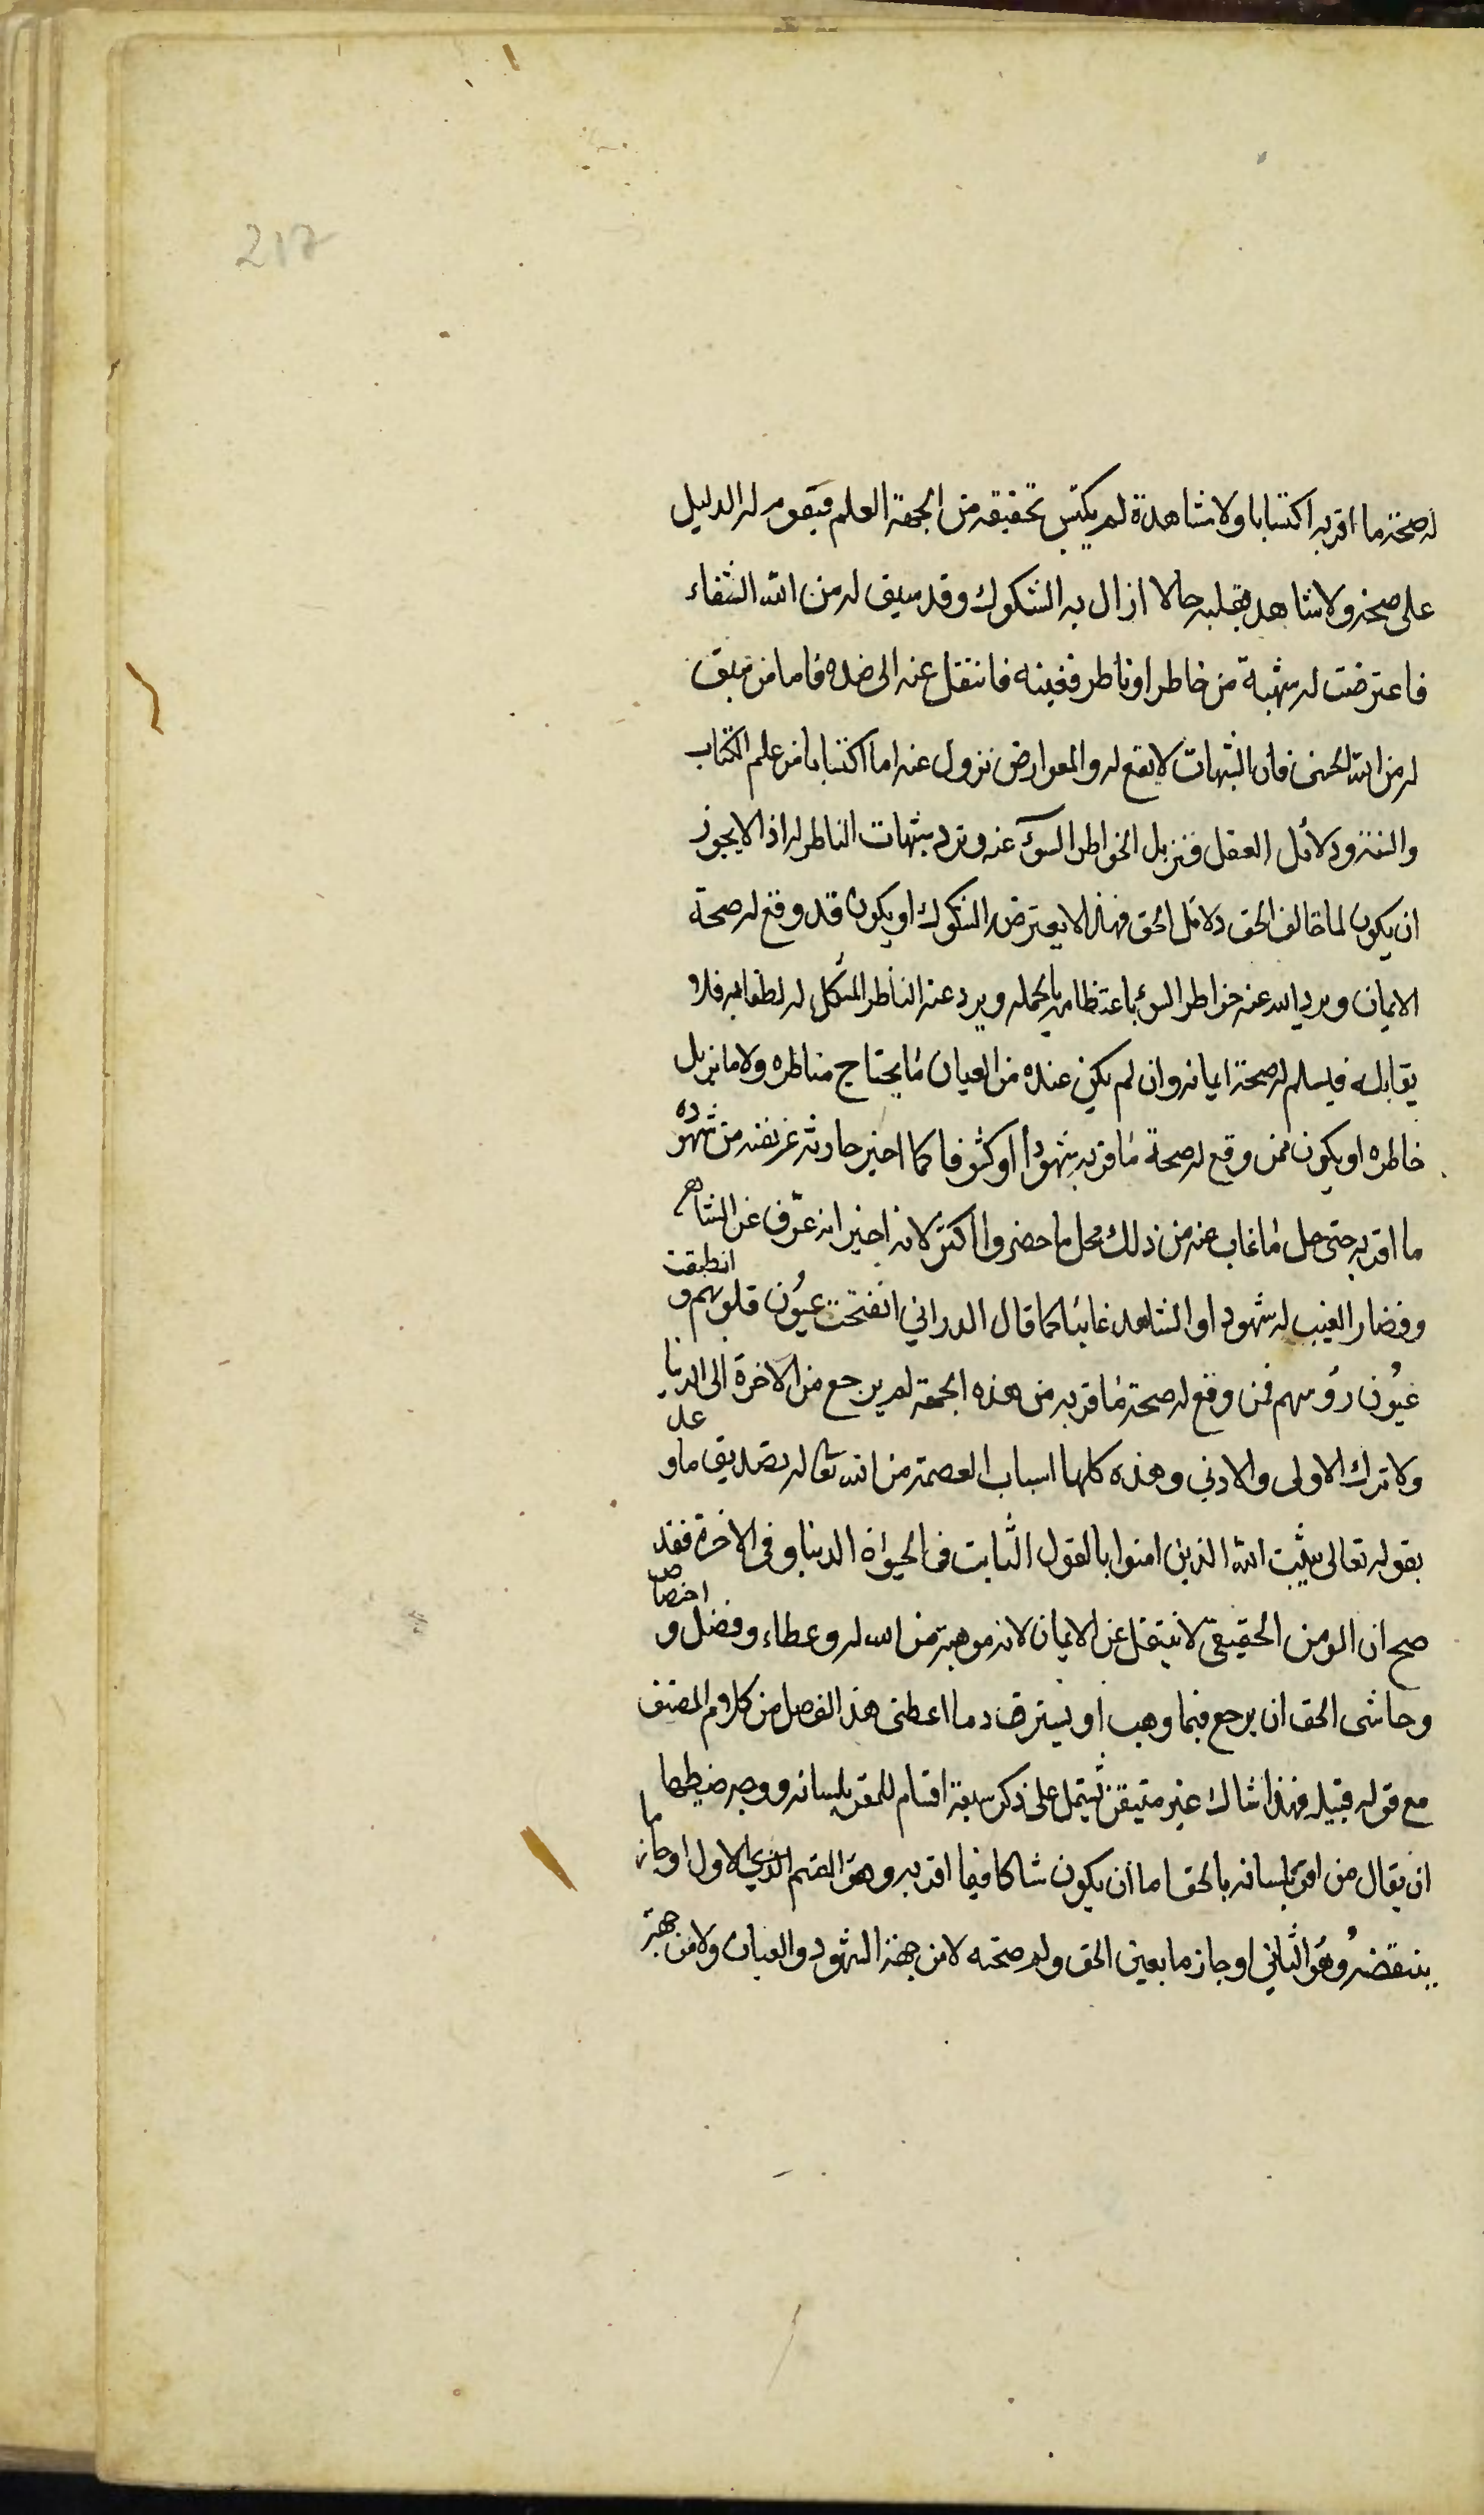 217
له صحة ما اقر به اكتسابا ولا مشاهدة لم يكتسب تحقيقه من الجهة العلم فيقوم له الدليل
على صحته ولا شاهد بقلبه حالا ازال به الشكوك وقد سبق له من الله الشقاء
فاعترضت له شبهة من خاطر او ناظر ففتنه فانتقل عنه الى ضده فاما من سبق
له من الله الحسنى فان الشبهات لا تقع له والعوارض تزول عنه اما اكتسابا من علم الكتاب
والسنة ودلائل العقل فتزيل الخواطر السوء عنه وترد شبهات الناظر له اذ لا يجوز
ان يكون لما خالف الحق دلائل الحق فهذا لا يعترض الشكوك او يكون قد وقع له صحة
الايمان ويرد الله عنه خواطر السوء باعتظامه بالجملة ويرد عنه الناظر المشكل له لطفا به فلا
يقابله فيسلم له صحة ايمانه وان لم يكن عنده من العيان ما يحتاج مناظره ولا ما يزيل
خاطره او يكون ممن وقع له صحة ما اقر به شهودا او كشوفا كما اخبر حارثة عن نفسه من شهوده
ما اقر به حتى حل ما غاب عنه من ذلك محل ما حضر وا اكثر لانه اخبر انه عزف عن الشاهد
وفصار الغيب له شهودا والشاهد غائبا كما قال الدراني انفتحت عيون قلوبهم و انطبقت
عيون رؤسهم فمن وقع له صحة ما اقر به من هذه الجهة لم يرجع من الاخرة الى الدنيا
ولا ترك الاولى والادني وهذه كلها اسباب العصمة من الله تعالى له تصديق ما وعد
بقوله تعالى يثبت الله الذين امنوا بالقول الثابت في الحيواة الدنيا وفي الاخرة فقد
صح ان المومن الحقيقي لا ينتقل عن الايمان لانه موهبة من الله له وعطاء وفضل و اختصاص
وحاشى الحق ان يرجع فيما وهب او يسترد ما اعطى هذا الفصل من كلام المصنف
مع قوله قبيله فهذا شاك غير متيقن تشتمل على ذكر سبعة اقسام للمقر بلسانه ووجه ضبطها
ان يقال من اقر بلسانه بالحق اما ان يكون شاكا فيما اقر به وهو القسم الذي الاول او جازما
بنقضه وهو الثاني او جازما بعين الحق وله صحته لا من جهة الشهود والعيان ولا من جهة